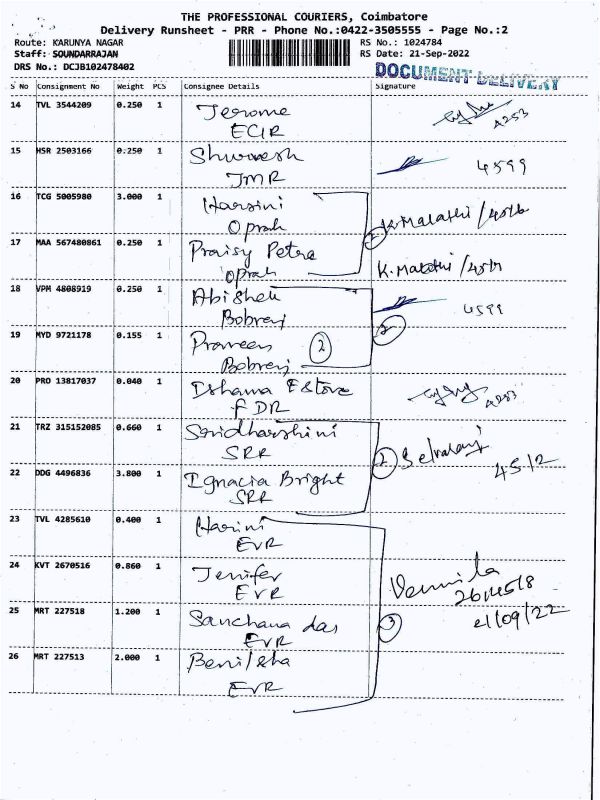 THE PROFESSIONAL COURIERS, Coimbatore
Delivery Runsheet - PRR - Phone No.:0422-3505555 - Page No.:2
Route: KARUNYA NAGAR RS No.: 1024784
Staff: SOUNDARRAJAN RS Date: 21-Sep-2022
DRS No.: DCJB102478402 DOCUMENT DELIVERY
S No Consignment No Weight PCS Consignee Details Signature
14 TVL 3544209 0.250 1 Jerome
ECIR 4253
15 HSR 2503166 0.250 1 Shwaresh 4599
JMR
16 TCG 5005980 3.000 1 Harsini
Oprah 2 K. Malathi
17 MAA 567480861 0.250 1 Praisy Petra
Oprah K. Malathi
18 VPM 4808919 0.250 1 Abishek 4599
Bobrenj 2
19 MYD 9721178 0.155 1 Praveen 2
Bobrenj
20 PRO 13817037 0.040 1 4253
FDR
21 TRZ 315152085 0.660 1 Sridharshini
SRR 2 Selvarani 4512
22 DDG 4496836 3.800 1 Ignacia Bright
SRR
23 TVL 4285610 0.400 1 Harini
EVR
24 KVT 2670516 0.860 1 Jenifer
EVR Vennila
25 MRT 227518 1.200 1 Sanchana das 21/09/22
EVR 3
26 MRT 227513 2.000 1 Benilsha
EVR